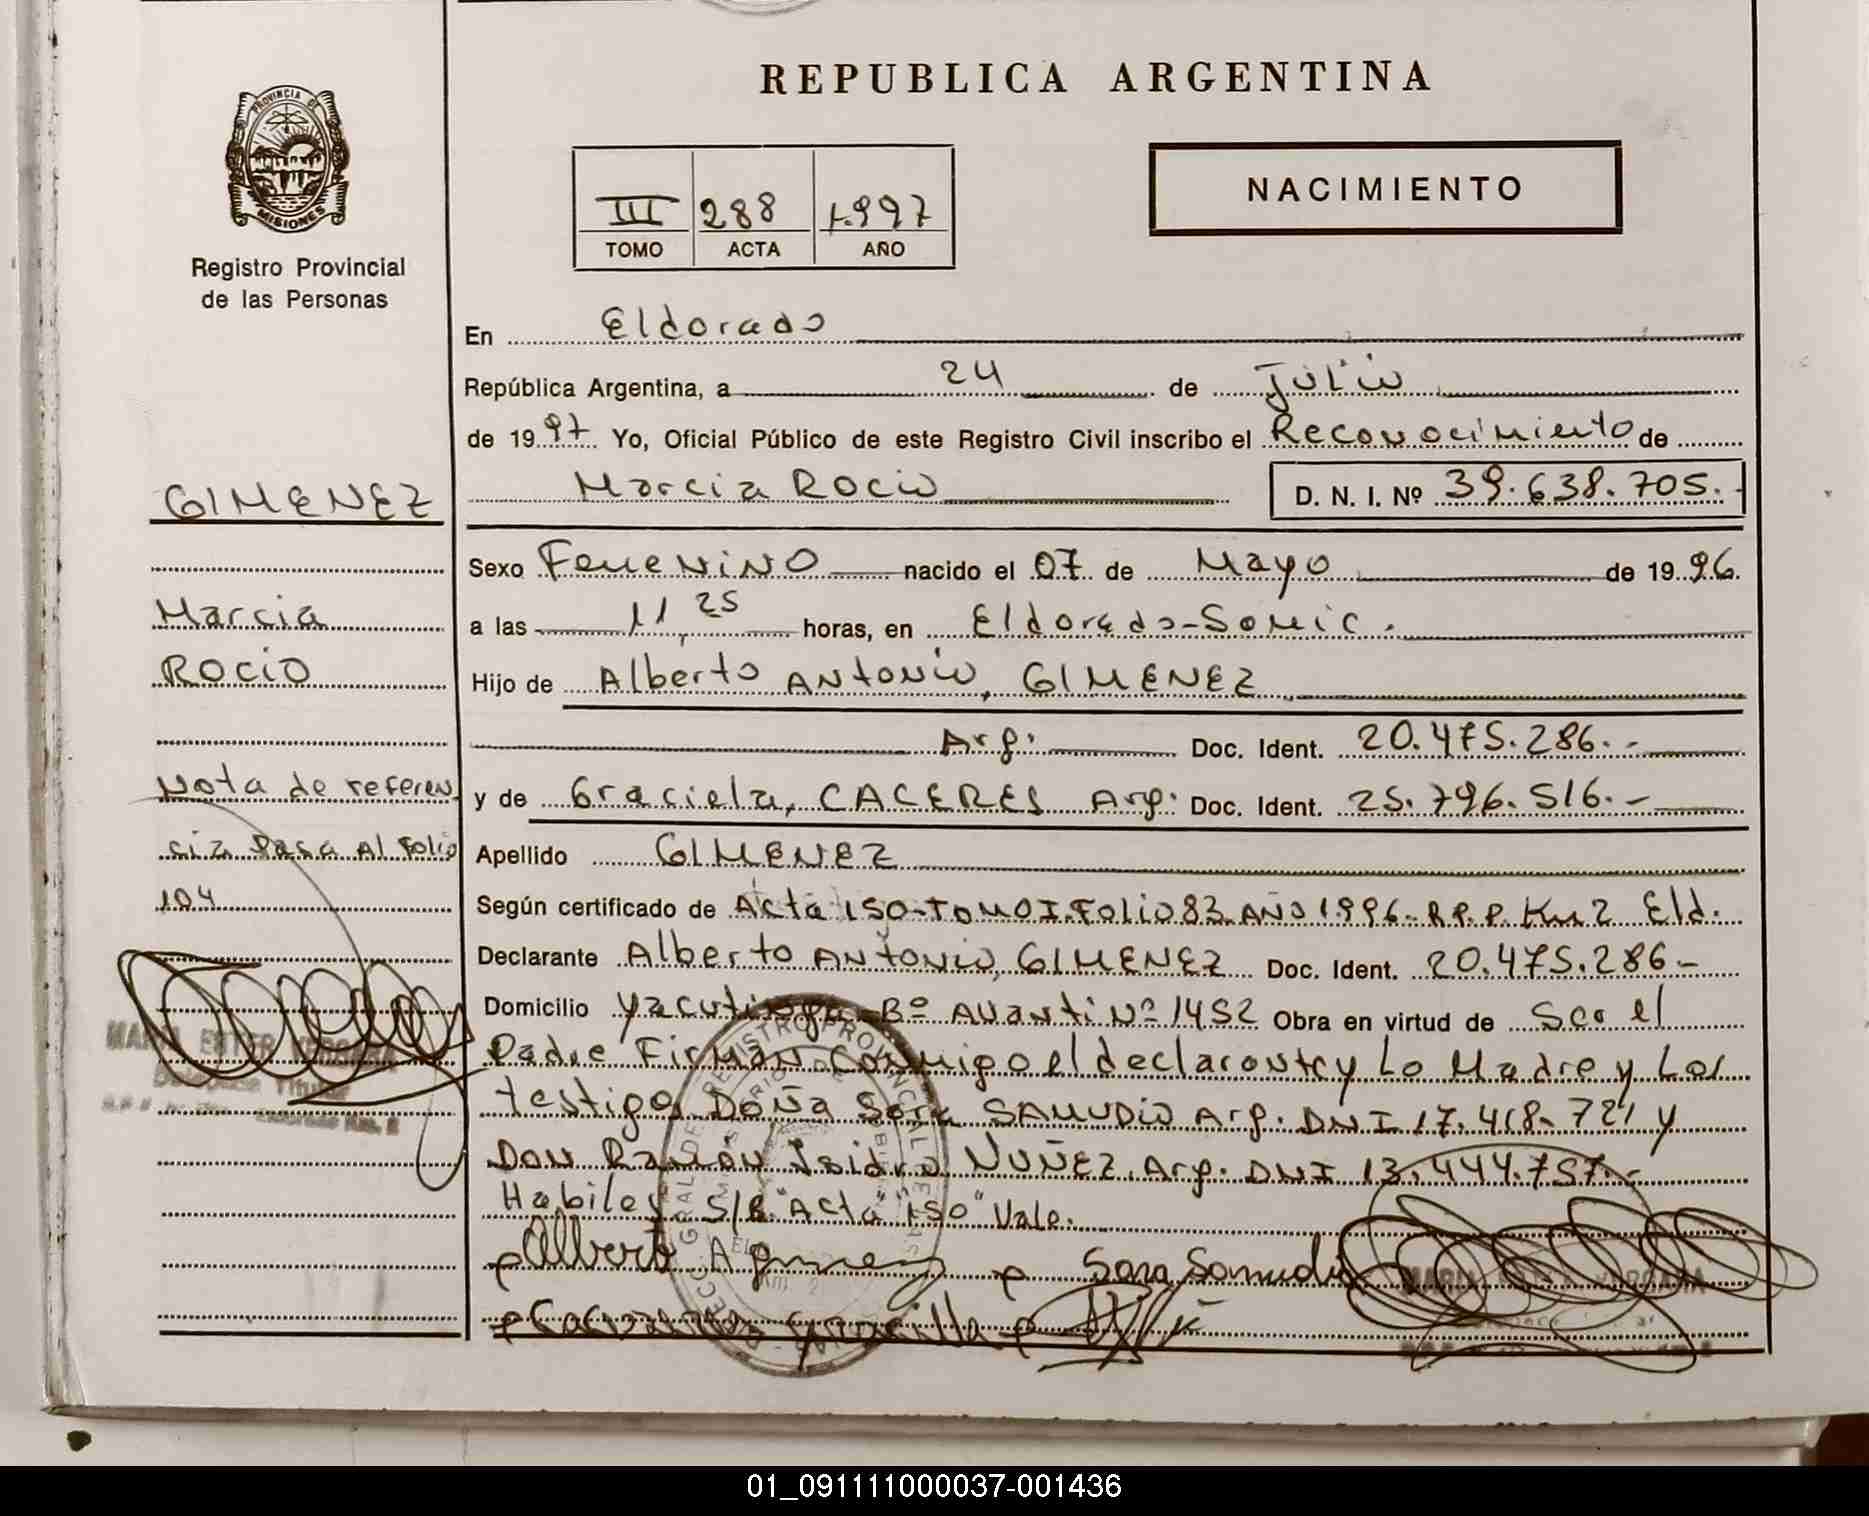 REPUBLICA ARGENTINA
PROVINCIA DE
MISIONES
Registro Provincial
de las Personas
III 288 1.997
TOMO ACTA AÑO
NACIMIENTO
En Eldorado
República Argentina, a 24 de Julio
de 1997 Yo, Oficial Público de este Registro Civil inscribo el Reconocimiento de
Marcia Rocio D. N. I. Nº 39.638.705.-
GIMENEZ
Marcia
Rocio
Nota de referen
cia Pasa Al Folio
104
Sexo Femenino nacido el 07 de Mayo de 1996.
a las 11,25 horas, en Eldorado-Somic.
Hijo de Alberto Antonio, GIMENEZ
Arg. Doc. Ident. 20.475.286.-
y de Graciela, CACERES Arg. Doc. Ident. 25.796.516.-
Apellido GIMENEZ
Según certificado de Acta 150-TOMO I.Folio 83 Año 1996-R.P.P. Km 2 Eld.
Declarante Alberto Antonio, GIMENEZ Doc. Ident. 20.475.286-
Domicilio Yacutinga Bº Avanti Nº 1452 Obra en virtud de Ser el
Padre Firman Conmigo el declarante y La Madre y Los
testigos Doña Sara SAMUDIO Arg. DNI 17.418.721 y
Don Ramón Isidro NUÑEZ. Arg. DNI 13.444.757.-
Habiles S/R "Acta" "150" Vale.
Alberto A Gimenez Sara Samudio
01_091111000037-001436